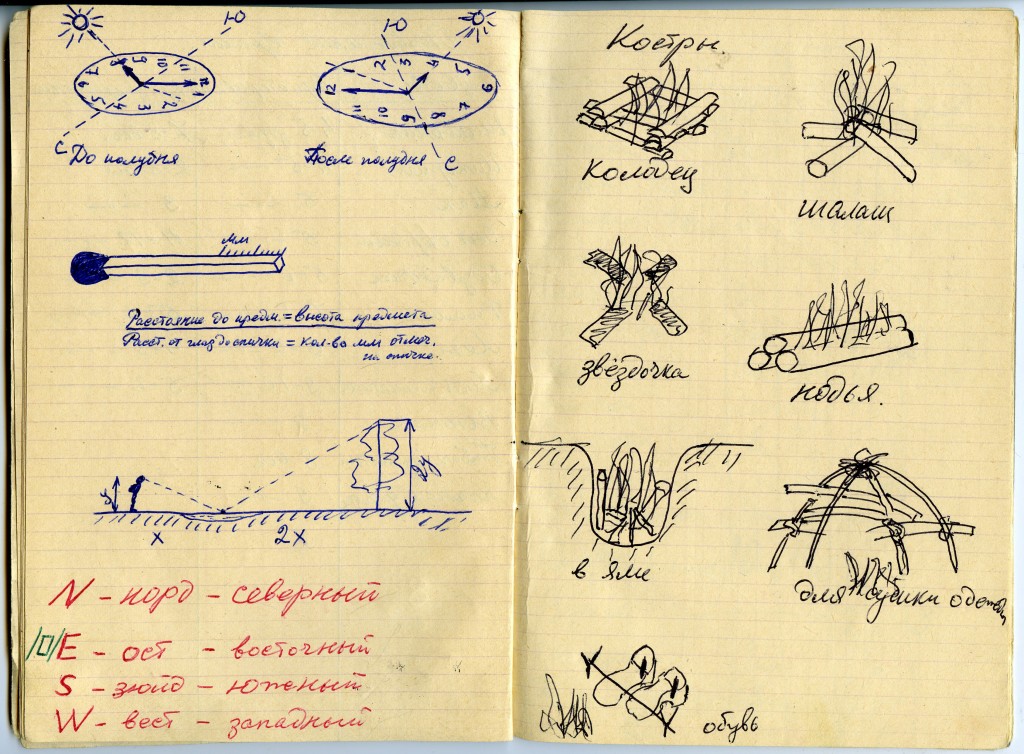 Ю
Ю
С
До полудня
После полудня
С
мм
Расстояние до предм. = высота предмета
Расст. от глаз до спички = кол-во мм отмеч.
на спичке.
y
2y
x
2x
N - норд - северный
/O/E - ост - восточный
S - зюйд - южный
W - вест - западный
Костры.
Колодец
шалаш
звёздочка
нодья.
в яме
для сушки одежды
обувь